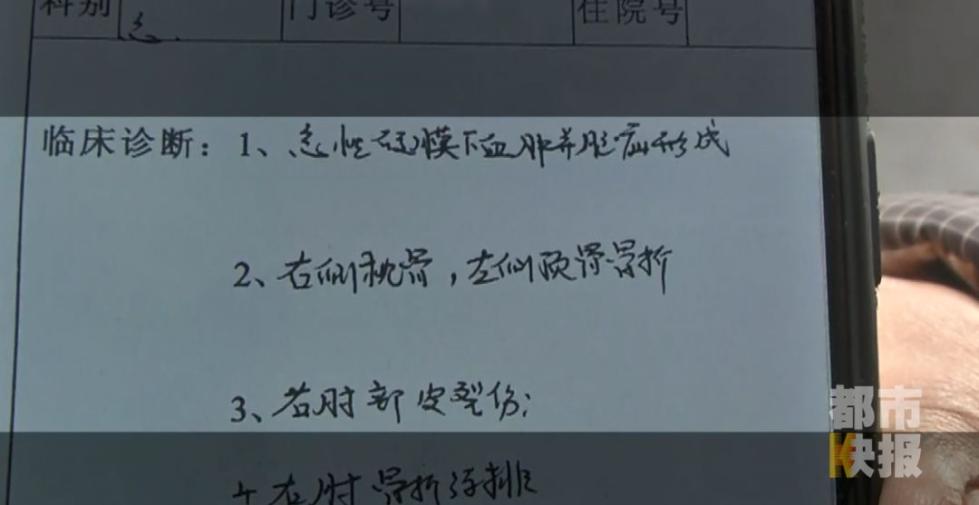 科别 急 门诊号 住院号
临床诊断：1、急性硬膜下血肿并脑疝形成
2、右侧枕骨，左侧顶骨骨折
3、右肘部皮裂伤；
4、右肘骨折待排
都市
快报